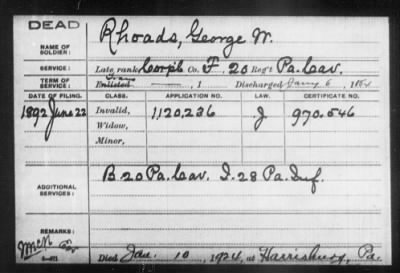 DEAD
NAME OF SOLDIER: Rhoads, George W.
SERVICE: Late rank Corp'l Co. F. 20 Reg't Pa. Cav.
TERM OF SERVICE: Enlisted , 1 Discharged Jany 6, 1864
DATE OF FILING. CLASS. APPLICATION NO. LAW. CERTIFICATE NO.
1892 June 22 Invalid, 1120,236 J 970.546
Widow,
Minor,
ADDITIONAL SERVICES: B 20 Pa. Cav. I. 28 Pa. Inf.
REMARKS:
Died Jan. 10, 1924, at Harrisburg, Pa.